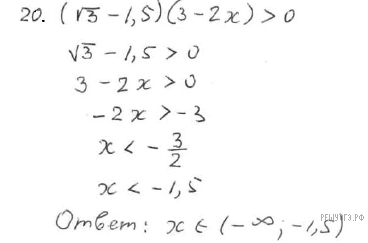 20. (√3 - 1,5)(3 - 2x) > 0
√3 - 1,5 > 0
3 - 2x > 0
- 2x > -3
x < - 3/2
x < -1,5
Ответ: x ∈ (-∞; -1,5)
РЕШУОГЭ.РФ